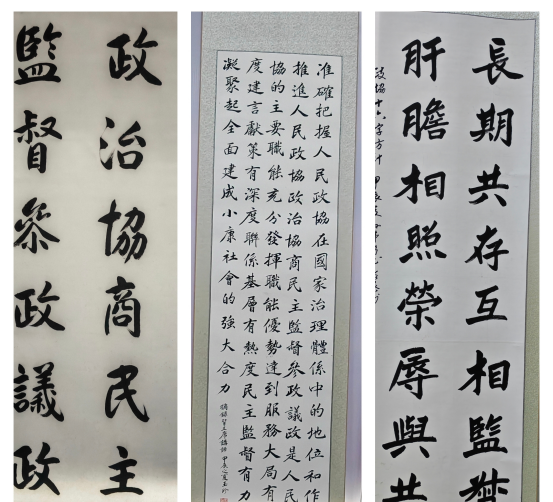 政治協商民主
監督參政議政
准確把握人民政協在國家治理體係中的地位和作
推進人民政協政治協商民主監督參政議政是人民
協的主要職能充分發揮職能優勢達到服務大局有
度建言獻策有深度聯係基層有熱度民主監督有力
凝聚起全面建成小康社會的強大合力
長期共存互相監督
肝膽相照榮辱與共
政協十六字方針 甲辰